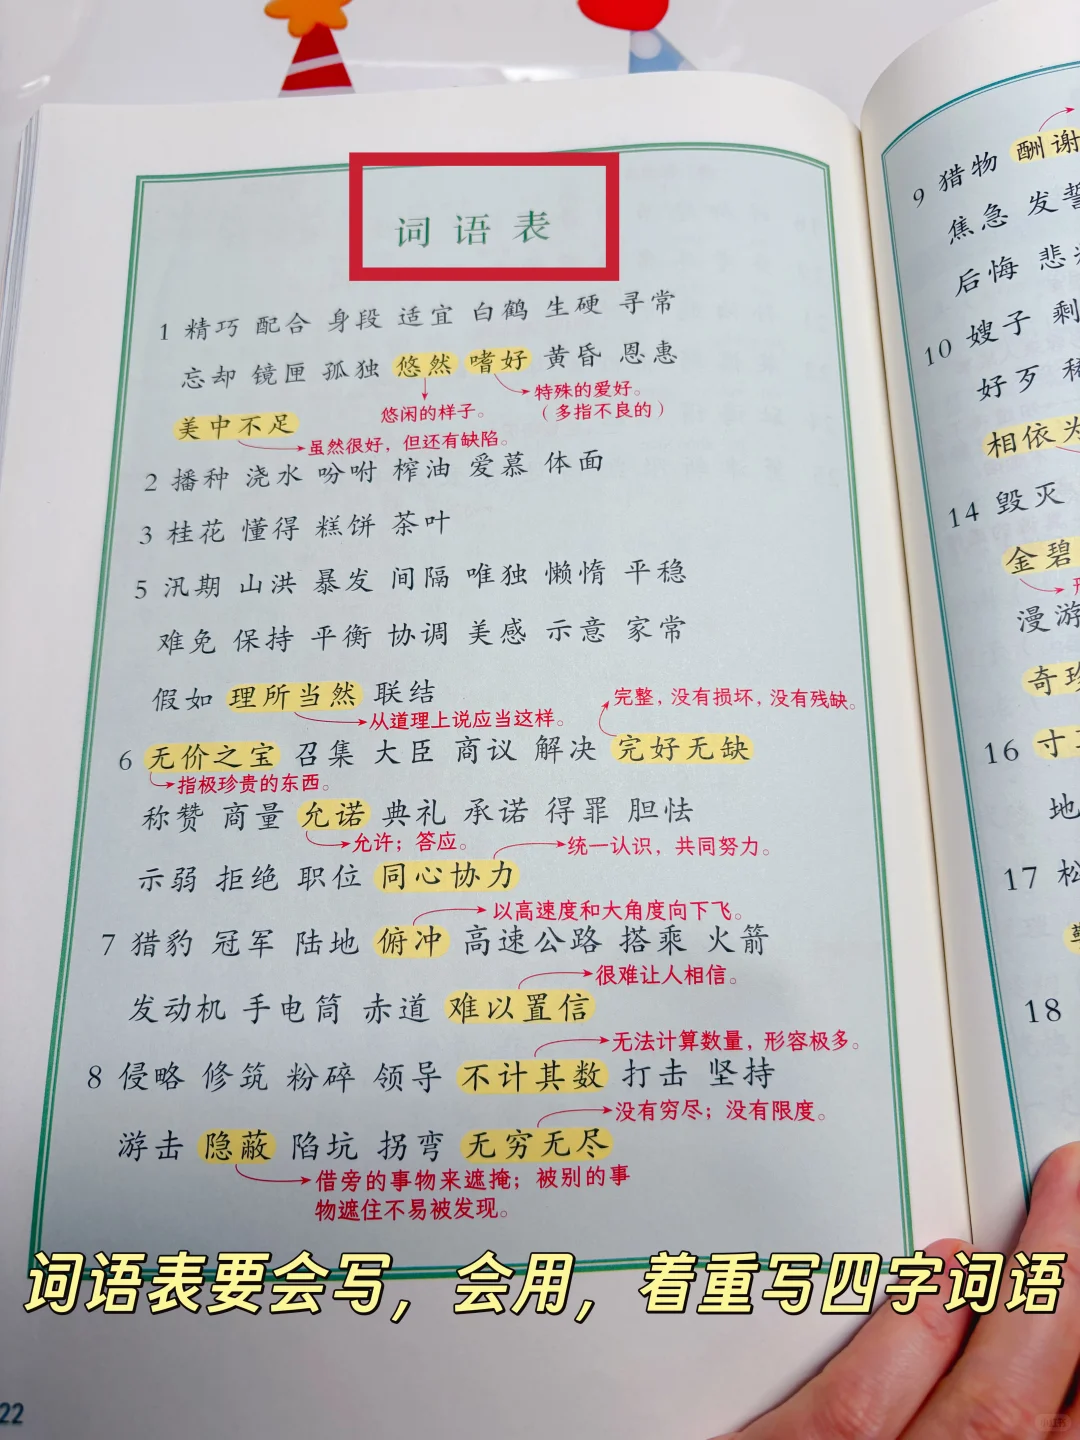 词语表
1 精巧 配合 身段 适宜 白鹤 生硬 寻常
忘却 镜匣 孤独 悠然 嗜好 黄昏 恩惠
悠闲的样子。
特殊的爱好。
（多指不良的）
美中不足
虽然很好，但还有缺陷。
2 播种 浇水 吩咐 榨油 爱慕 体面
3 桂花 懂得 糕饼 茶叶
5 汛期 山洪 暴发 间隔 唯独 懒惰 平稳
难免 保持 平衡 协调 美感 示意 家常
假如 理所当然 联结
从道理上说应当这样。
完整，没有损坏，没有残缺。
6 无价之宝 召集 大臣 商议 解决 完好无缺
指极珍贵的东西。
称赞 商量 允诺 典礼 承诺 得罪 胆怯
允许；答应。
统一认识，共同努力。
示弱 拒绝 职位 同心协力
以高速度和大角度向下飞。
7 猎豹 冠军 陆地 俯冲 高速公路 搭乘 火箭
很难让人相信。
发动机 手电筒 赤道 难以置信
无法计算数量，形容极多。
8 侵略 修筑 粉碎 领导 不计其数 打击 坚持
没有穷尽；没有限度。
游击 隐蔽 陷坑 拐弯 无穷无尽
借旁的事物来遮掩；被别的事
物遮住不易被发现。
9 猎物 酬谢
焦急 发誓
后悔 悲
10 嫂子 剩
好歹 稀
相依为
14 毁灭
金碧
漫游
奇珍
16 寸
地
17 松
18
词语表要会写，会用，着重写四字词语
22